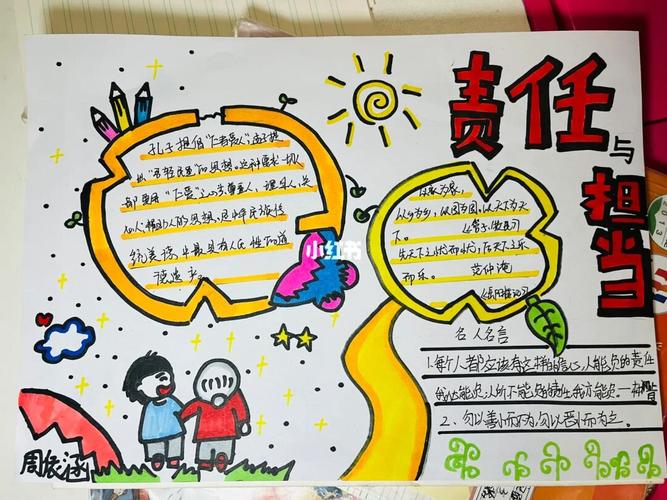 责任
与
担当
孔子提倡“仁者爱人”,孟子提
出“民贵君轻”的思想。这种要求一切人
都要用“仁爱”之心去尊重人、理解人、关
心人、帮助人的思想,是中华民族传
统美德中最具有人民性的道
德遗产。
以家为家,
以乡为乡,以国为国,以天下为天
下。
《管子·牧民》
先天下之忧而忧,后天下之乐
而乐。 范仲淹
《岳阳楼记》
小红书
名人名言
1.每个人都应该有这样的信心,人能负的责任
我必能负;人所不能负的责任我亦能负。—林肯
2、勿以善小而不为,勿以恶小而为之。
周宸涵